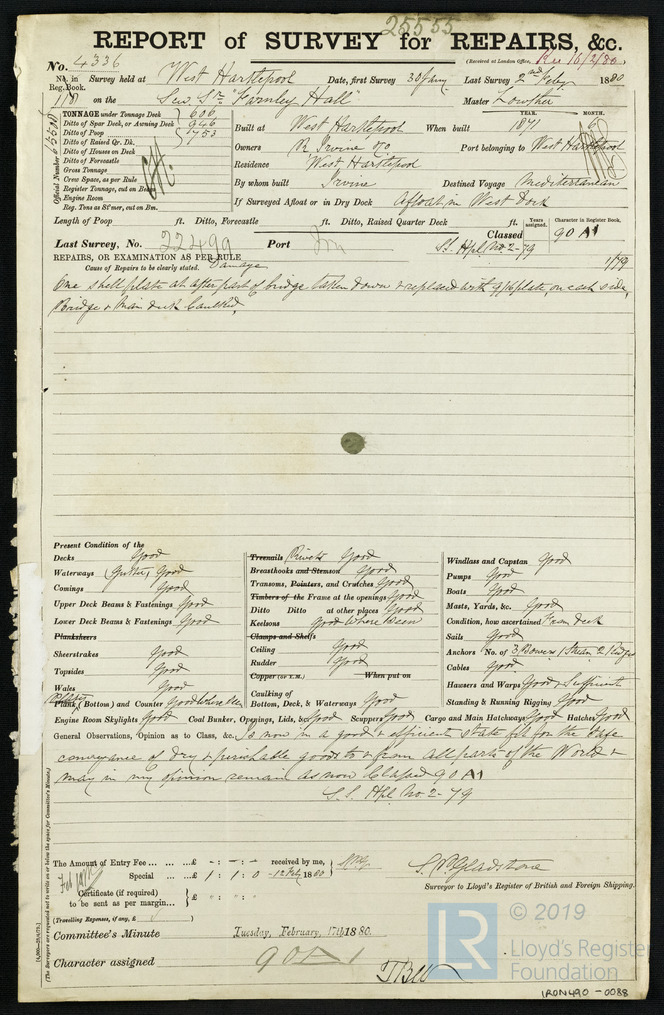 25555
REPORT of SURVEY for REPAIRS, &c.
(Received at London Office, Rec 16/2/80.
No. 4336
No. in Reg. Book. Survey held at West Hartlepool Date, first Survey 30 Jany. Last Survey 2nd Feby 1880
on the Screw Sr. "Farnley Hall" Master Lowther
TONNAGE under Tonnage Deck 606
Ditto of Spar Deck, or Awning Deck 946
Ditto of Poop 1753
Ditto of Raised Qr. Dk.
Ditto of Houses on Deck
Ditto of Forecastle
Gross Tonnage
Crew Space, as per Rule
Register Tonnage, cut on Beam
Engine Room
Reg. Tons as St'mer, cut on Bm.
Official Number
YEAR. MONTH.
Built at West Hartlepool When built 1871
Owners R Irvine & Co Port belonging to West Hartlepool
Residence West Hartlepool
By whom built Irvine Destined Voyage Mediterranean
If Surveyed Afloat or in Dry Dock Afloat in West Dock
Length of Poop ft. Ditto, Forecastle ft. Ditto, Raised Quarter Deck ft.
Years assigned. Character in Register Book.
Classed 90 A1
Last Survey, No. 22499 Port Lon S.S. Hpl. No. 2-79
1/79
REPAIRS, OR EXAMINATION AS PER RULE
Cause of Repairs to be clearly stated. Damage
One shell plate at after part of bridge taken down & replaced with 9/16 plate, on each side,
Bridge & Main deck Caulked,
Present Condition of the
Decks Good
Waterways (Gutter) Good
Comings Good
Upper Deck Beams & Fastenings Good
Lower Deck Beams & Fastenings Good
Planksheers
Sheerstrakes Good
Topsides Good
Wales Good
Plank, (Bottom) and Counter Good where seen
Treenails Rivets Good
Breasthooks and Stemson Good
Transoms, Pointers, and Crutches Good
Timbers of the Frame at the openings Good
Ditto Ditto at other places Good
Keelsons Good Where Seen
Clamps and Shelfs
Ceiling Good
Rudder Good
Copper (or Y.M.) When put on
Caulking of
Bottom, Deck, & Waterways Good
Windlass and Capstan Good
Pumps Good
Boats Good
Masts, Yards, &c. Good
Condition, how ascertained From deck
Sails Good
Anchors No. of 3 Bowers 1 Stream 2 Kedges
Cables Good
Hawsers and Warps Good & Sufficient
Standing & Running Rigging Good
Engine Room Skylights Good Coal Bunker, Openings, Lids, &c. Good Scuppers Good Cargo and Main Hatchways Good Hatches Good
General Observations, Opinion as to Class, &c. Is now in a good & efficient state fit for the safe
conveyance of dry & perishable goods to & from all parts of the World &
may in my opinion remain as now Classed 90 A1
S.S. Hpl. No. 2-79
The Amount of Entry Fee ... ... ...£ - : - : - received by me,
Special ... ...£ 1 : 1 : 0 - 12 Feby 1880
Certificate (if required)
to be sent as per margin... £ " : " :
(Travelling Expenses, if any, £
Surveyor to Lloyd's Register of British and Foreign Shipping.
Committee's Minute Tuesday, February, 17th 1880.
Character assigned 90 A 1
(The Surveyors are requested not to write on or below the space for Committee's Minute.)
LR
© 2019
Lloyd's Register
Foundation
IRON490-0088